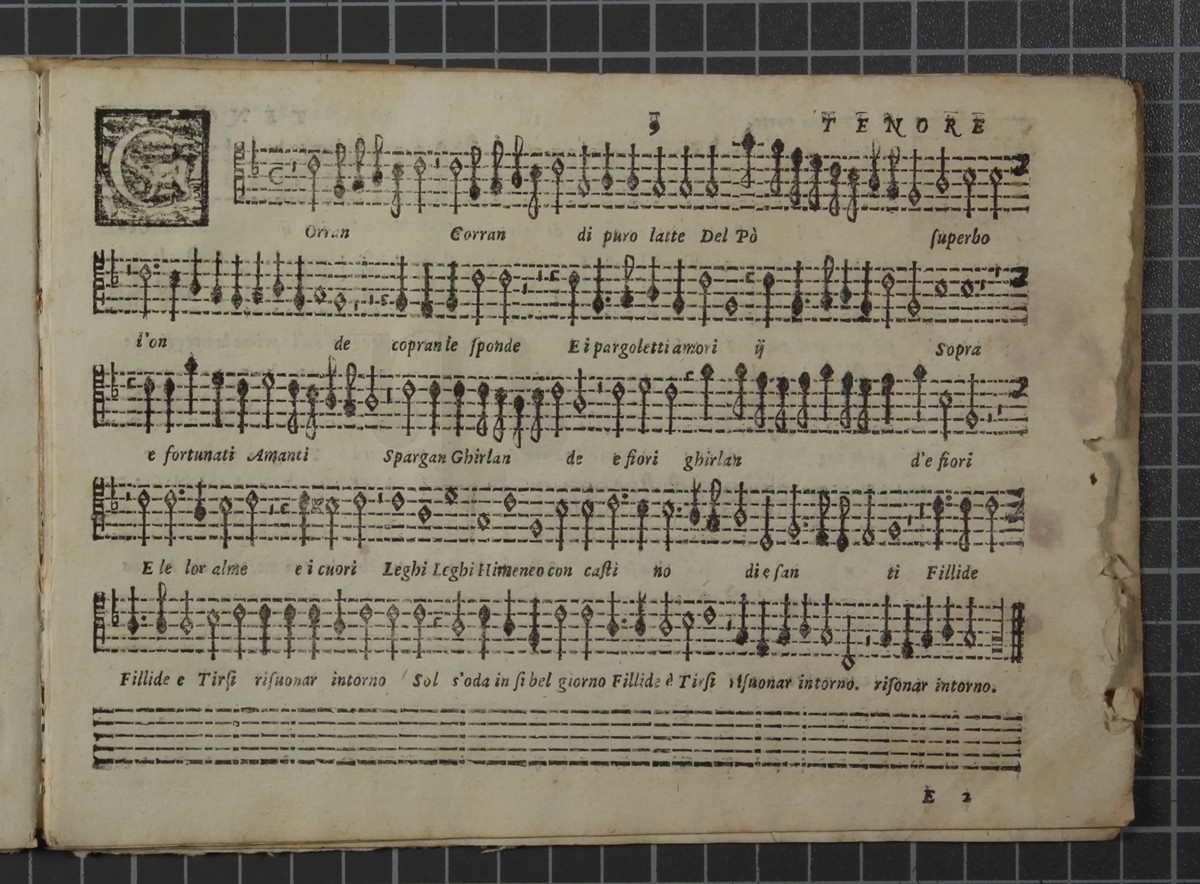 9 TENORE
C Orran Corran di puro latte Del Pò ſuperbo
i'on de copran le ſponde E i pargoletti amori ij Sopra
e fortunati Amanti Spargan Ghirlan de e fiori ghirlan d'e fiori
E le lor alme e i cuori Leghi Leghi Himeneo con caſti no di e ſan ti Fillide
Fillide e Tirſi riſuonar intorno Sol s'oda in ſi bel giorno Fillide è Tirſi riſuonar intorno. riſonar intorno.
E 2